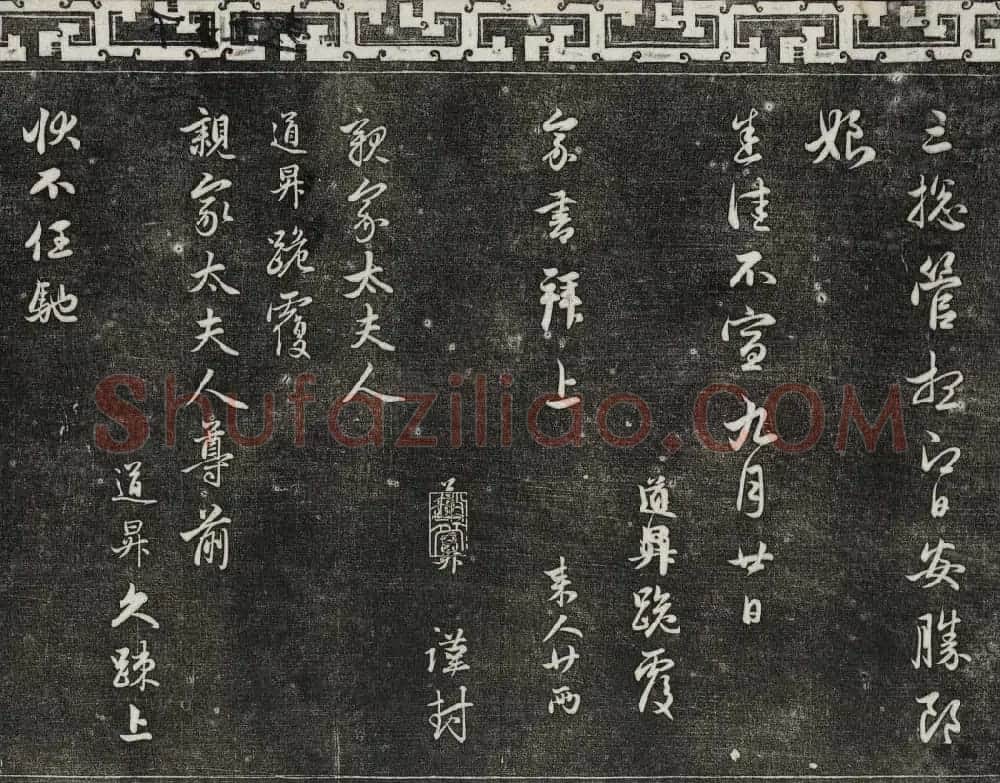 三捴管想即日安勝郎
娘
集佳不宣九月廿日
道昇跪覆
家書拜上
来人廿兩
道昇
謹封
親家太夫人
道昇跪覆
親家太夫人尊前
道昇久疎上
狀不任馳
Shufaziliao.COM